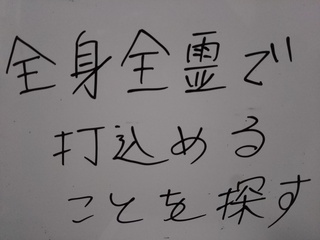 全身全霊で
打込める
ことを探す